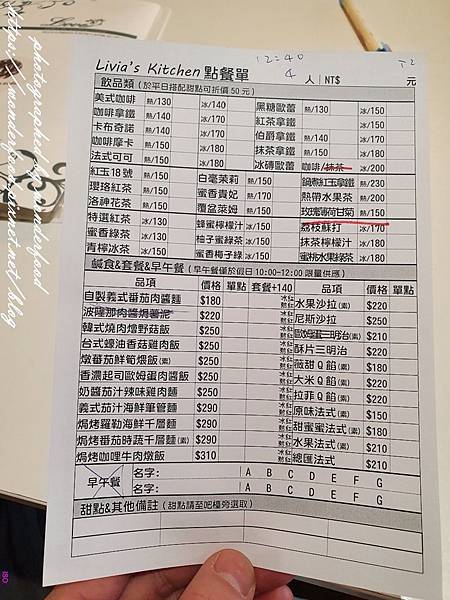 photographed by wanderfood
12:40
Livia's Kitchen 點餐單 4 人 NT$ 元 T2
飲品類 (於平日搭配甜點可折價 50 元)
美式咖啡 熱/130 冰/140 黑糖歐蕾 熱/130 冰/150
咖啡拿鐵 熱/140 冰/170 紅茶拿鐵 冰/150
卡布奇諾 熱/140 冰/170 伯爵拿鐵 熱/140 冰/150
咖啡摩卡 熱/150 冰/180 抹茶拿鐵 熱/150 冰/180
法式可可 熱/150 冰/180 冰磚歐蕾 咖啡/抹茶 冰/200
紅玉18號 熱/150 白毫茉莉 熱/150 鍋煮紅玉拿鐵 熱/230
瓔珞紅茶 熱/150 蜜香貴妃 熱/170 熱帶水果茶 熱/150
洛神花茶 熱/150 覆盆萊姆 熱/150 玫瑰薄荷甘菊 熱/150
特選紅茶 冰/130 蜂蜜檸檬汁 冰/150 荔枝蘇打 冰/170
蜜香綠茶 冰/130 柚子蜜綠茶 冰/150 抹茶檸檬汁 冰/180
青檸冰茶 冰/150 蜜香梅子綠 冰/150 蜜桃水果綠茶 冰/180
鹹食&套餐&早午餐 (早午餐僅於假日 10:00~12:00 限量供應)
品項 價格 單點 套餐+140 品項 價格 單點
自製義式番茄肉醬麵 $180 冰紅 熱紅 水果沙拉(素) $220
波隆那肉醬焗薯泥 冰紅 熱紅 尼斯沙拉 $250
韓式燒肉燴野菇飯 $250 冰紅 熱紅 歐姆蛋三明治(素) $210
台式蠔油香菇雞肉飯 $250 冰紅 熱紅 酥片三明治 $220
燉番茄鮮筍煨飯(素) $250 冰紅 熱紅 薇甜Q餡(素) $180
香濃起司歐姆蛋肉醬飯 $250 冰紅 熱紅 大米Q餡 $220
奶醬茄汁辣味雞肉麵 $250 冰紅 熱紅 拉菲Q餡(素) $220
義式茄汁海鮮筆管麵 $290 冰紅 熱紅 原味法式(素) $150
焗烤羅勒海鮮千層麵 $290 冰紅 熱紅 甜蜜蜜法式(素) $180
焗烤番茄時蔬千層麵(素) $290 冰紅 熱紅 水果法式(素) $210
焗烤咖哩牛肉燉飯 $310 冰紅 熱紅 總匯法式 $210
早午餐 名字: A B C D E F G
名字: A B C D E F G
甜點&其他備註 (甜點請至吧檯旁選取)